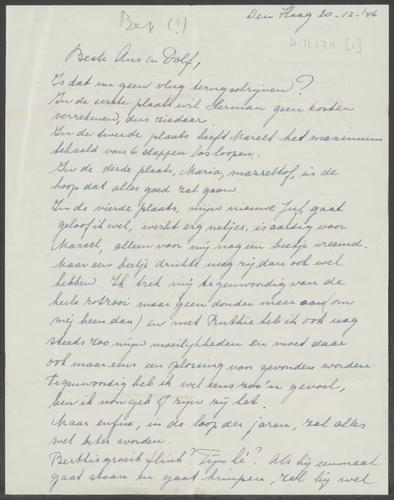 Bep (!)
Den Haag 20-12-'46
D.11174 [1]
Beste Ans en Dolf,
Is dat nu geen vlug terugschrijven?
In de eerste plaats wil Herman geen kosten
verrekenen, dus ziedaar.
In de tweede plaats heeft Marcel het maximum
behaald van 6 stappen los loopen.
In de derde plaats, Maria, mazzeltof, in de
hoop dat alles goed zal gaan.
In de vierde plaats, mijn nieuwe Juf, gaat
geloof ik wel, werkt erg netjes, is aardig voor
Marcel, alleen voor mij nog een beetje vreemd.
Maar een beetje drukte mag zij dan ook wel
hebben. Ik trek mij tegenwoordig van de
heele rotzooi maar geen donder meer aan (om
mij heen dan) en met Ruthie heb ik ook nog
steeds zoo mijn moeilijkheden en moet daar
ook maar eens een oplossing voor gevonden worden.
Tegenwoordig heb ik wel eens zoo'n gevoel,
ben ik nou gek of zijn zij het.
Maar enfin, in de loop der jaren, zal alles
wel beter worden.
Berthie groeit flink? Fijn hé? Als hij eenmaal
gaat staan en gaat kruipen, zal hij wel